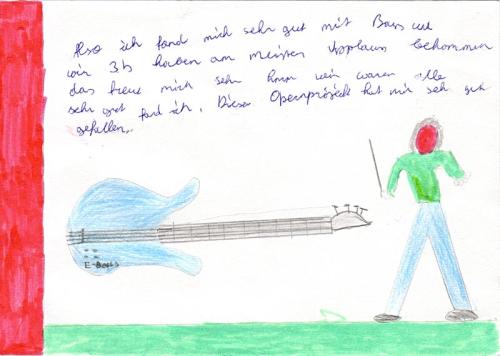 Also ich fand mich sehr gut mit Bass und
wir 3b haben am meisten Applaus bekommen
das freut mich sehr wir waren alle
sehr gut fand ich. Dieser Opernprojeckt hat mir seh gut
gefallen.
E-Bass